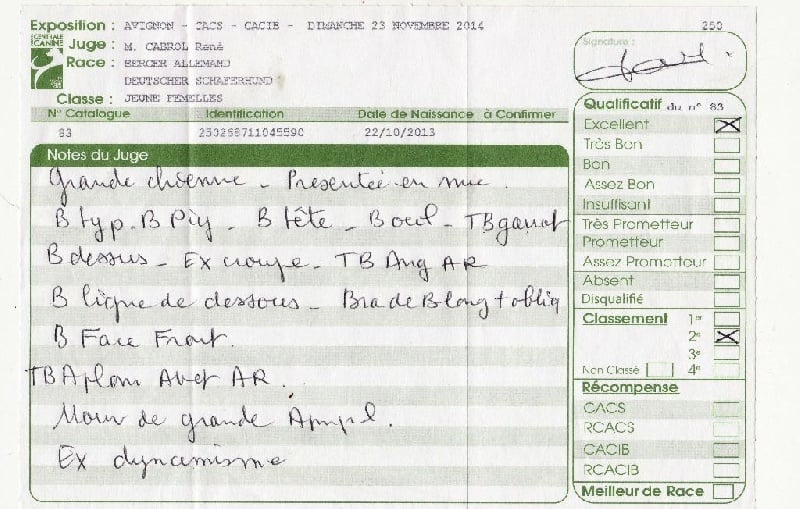 Exposition : AVIGNON - CACS - CACIB - DIMANCHE 23 NOVEMBRE 2014
250
CENTRALE CANINE
Juge : M. CABROL René
Race : BERGER ALLEMAND
DEUTSCHER SCHAFERHUND
Classe : JEUNE FEMELLES
Signature :
N° Catalogue Identification Date de Naissance à Confirmer
83 250268711045590 22/10/2013
Notes du Juge
Grande chienne - Presentée en mue.
B typ. B Piy - B tête - B oeil - TB garrot
B dessus - Ex croupe - TB Ang AR
B ligne de dessous - Bra de B long + obliq
B Face Front.
TB Aplom Av et AR.
Mouv de grande Ampl.
Ex dynamisme
Qualificatif du n° 83
Excellent
Très Bon
Bon
Assez Bon
Insuffisant
Très Prometteur
Prometteur
Assez Prometteur
Absent
Disqualifié
Classement 1er
2e
3e
Non Classé 4e
Récompense
CACS
RCACS
CACIB
RCACIB
Meilleur de Race